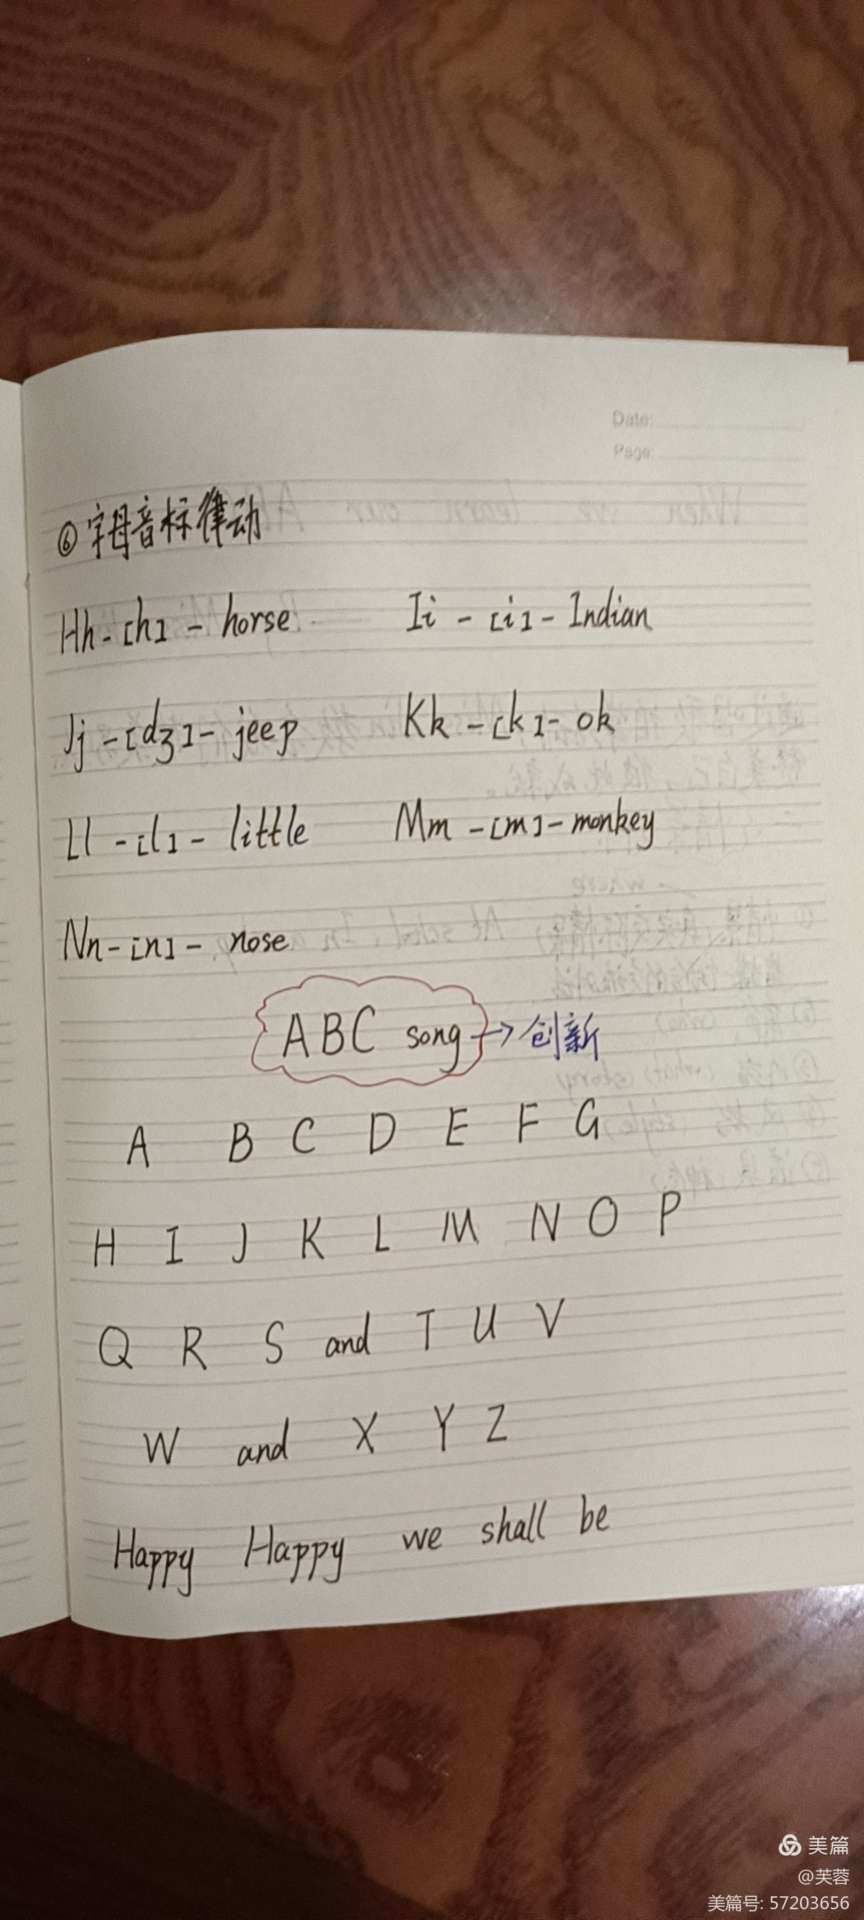 Date:
Page:
⑥字母音标律动
Hh-[h]-horse Ii-[i]-Indian
Jj-[dʒ]-jeep Kk-[k]-ok
Ll-[l]-little Mm-[m]-monkey
Nn-[n]-nose
ABC song→创新
A B C D E F G
H I J K L M N O P
Q R S and T U V
W and X Y Z
Happy Happy we shall be
美篇
@芙蓉
美篇号: 57203656